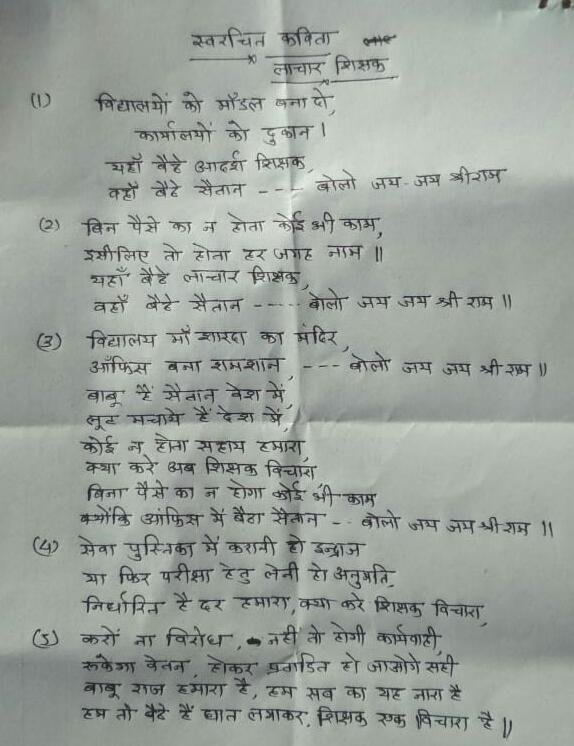 स्वरचित कविता
लाचार शिक्षक
(1) विद्यालयों को मॉडल बना दो,
कार्यालयों को दुकान।
यहाँ बैठे आदर्श शिक्षक,
वहाँ बैठे सैतान ---- बोलो जय-जय श्रीराम
(2) बिन पैसे का न होता कोई भी काम,
इसीलिए तो होता हर जगह नाम ॥
यहाँ बैठे लाचार शिक्षक,
वहाँ बैठे सैतान ----- बोलो जय जय श्री राम ॥
(3) विद्यालय माँ शारदा का मंदिर,
ऑफिस बना शमशान, --- बोलो जय जय श्री राम ॥
बाबू हैं सैतान वेश में,
लूट मचाये हैं देश में,
कोई न होता सहाय हमारा,
क्या करे अब शिक्षक विचारा
बिना पैसे का न होगा कोई भी काम
क्योंकि ऑफिस में बैठा सैतान -- बोलो जय जय श्री राम ॥
(4) सेवा पुस्तिका में करानी हो इन्द्राज
या फिर परीक्षा हेतु लेनी हो अनुमति,
निर्धारित है दर हमारा, क्या करे शिक्षक विचारा,
(5) करों ना विरोध, नहीं तो होगी कार्यवाही,
रूकेगा वेतन, होकर प्रताडित हो जाओगे सही
बाबू राज हमारा है, हम सब का यह नारा है
हम तो बैठे हैं घात लगाकर, शिक्षक एक विचारा है ॥